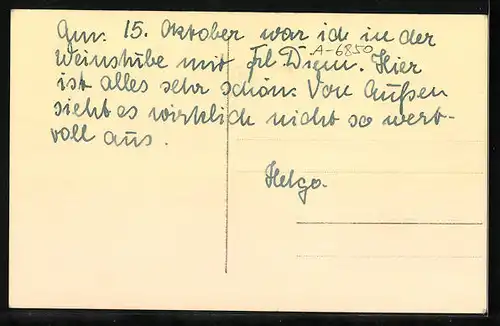 Am 15. Oktober war ich in der
Weinstube mit Frl Diem. Hier
A-6850
ist alles sehr schön. Von Außen
sieht es wirklich nicht so wert-
voll aus.
Helga.